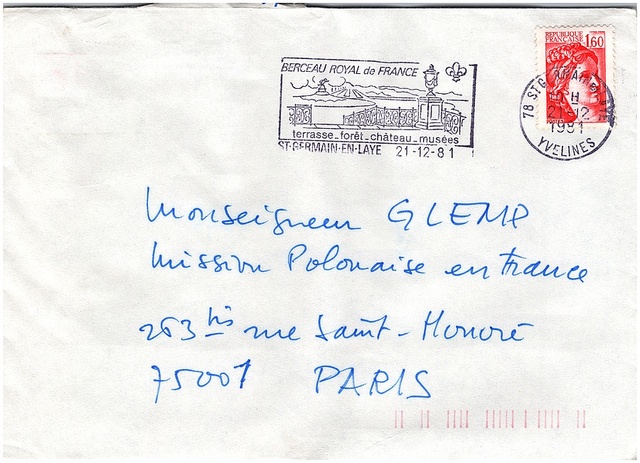 BERCEAU ROYAL de FRANCE
terrasse_forêt_château_musées
ST-GERMAIN-EN-LAYE 21-12-81
REPUBLIQUE
FRANCAISE 1,60
78 ST G
H
21-12
1981
YVELINES
Monseigneur GLEMP
Mission Polonaise en France
263 bis rue Saint-Honoré
75001 PARIS